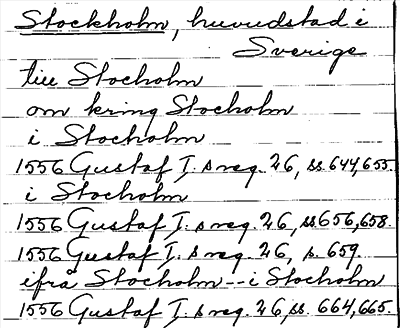 Stockholm, huvudstad i
Sverige
till Stocholm
om kring Stocholm
i Stocholm
1556 Gustaf I. s reg. 26, ss. 644, 655.
i Stocholm
1556 Gustaf I. s reg. 26, ss 656, 658.
1556 Gustaf I. s reg. 26, s. 659.
ifrå Stocholm -- i Stocholm
1556 Gustaf I. s reg. 26, ss. 664, 665.